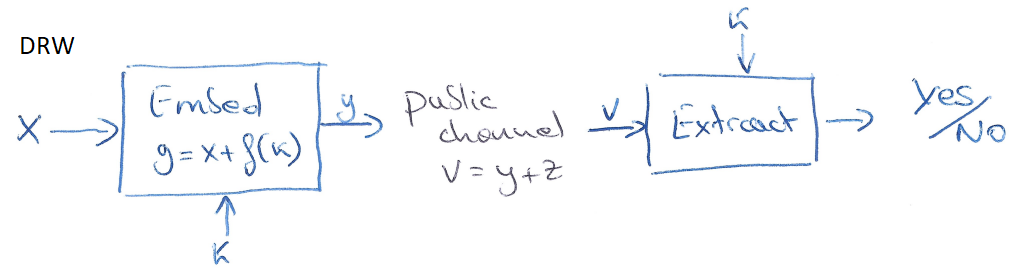 DRW
X
Embed
y = x + f(k)
k
y
public
channel
v = y + z
v
k
Extract
Yes/No